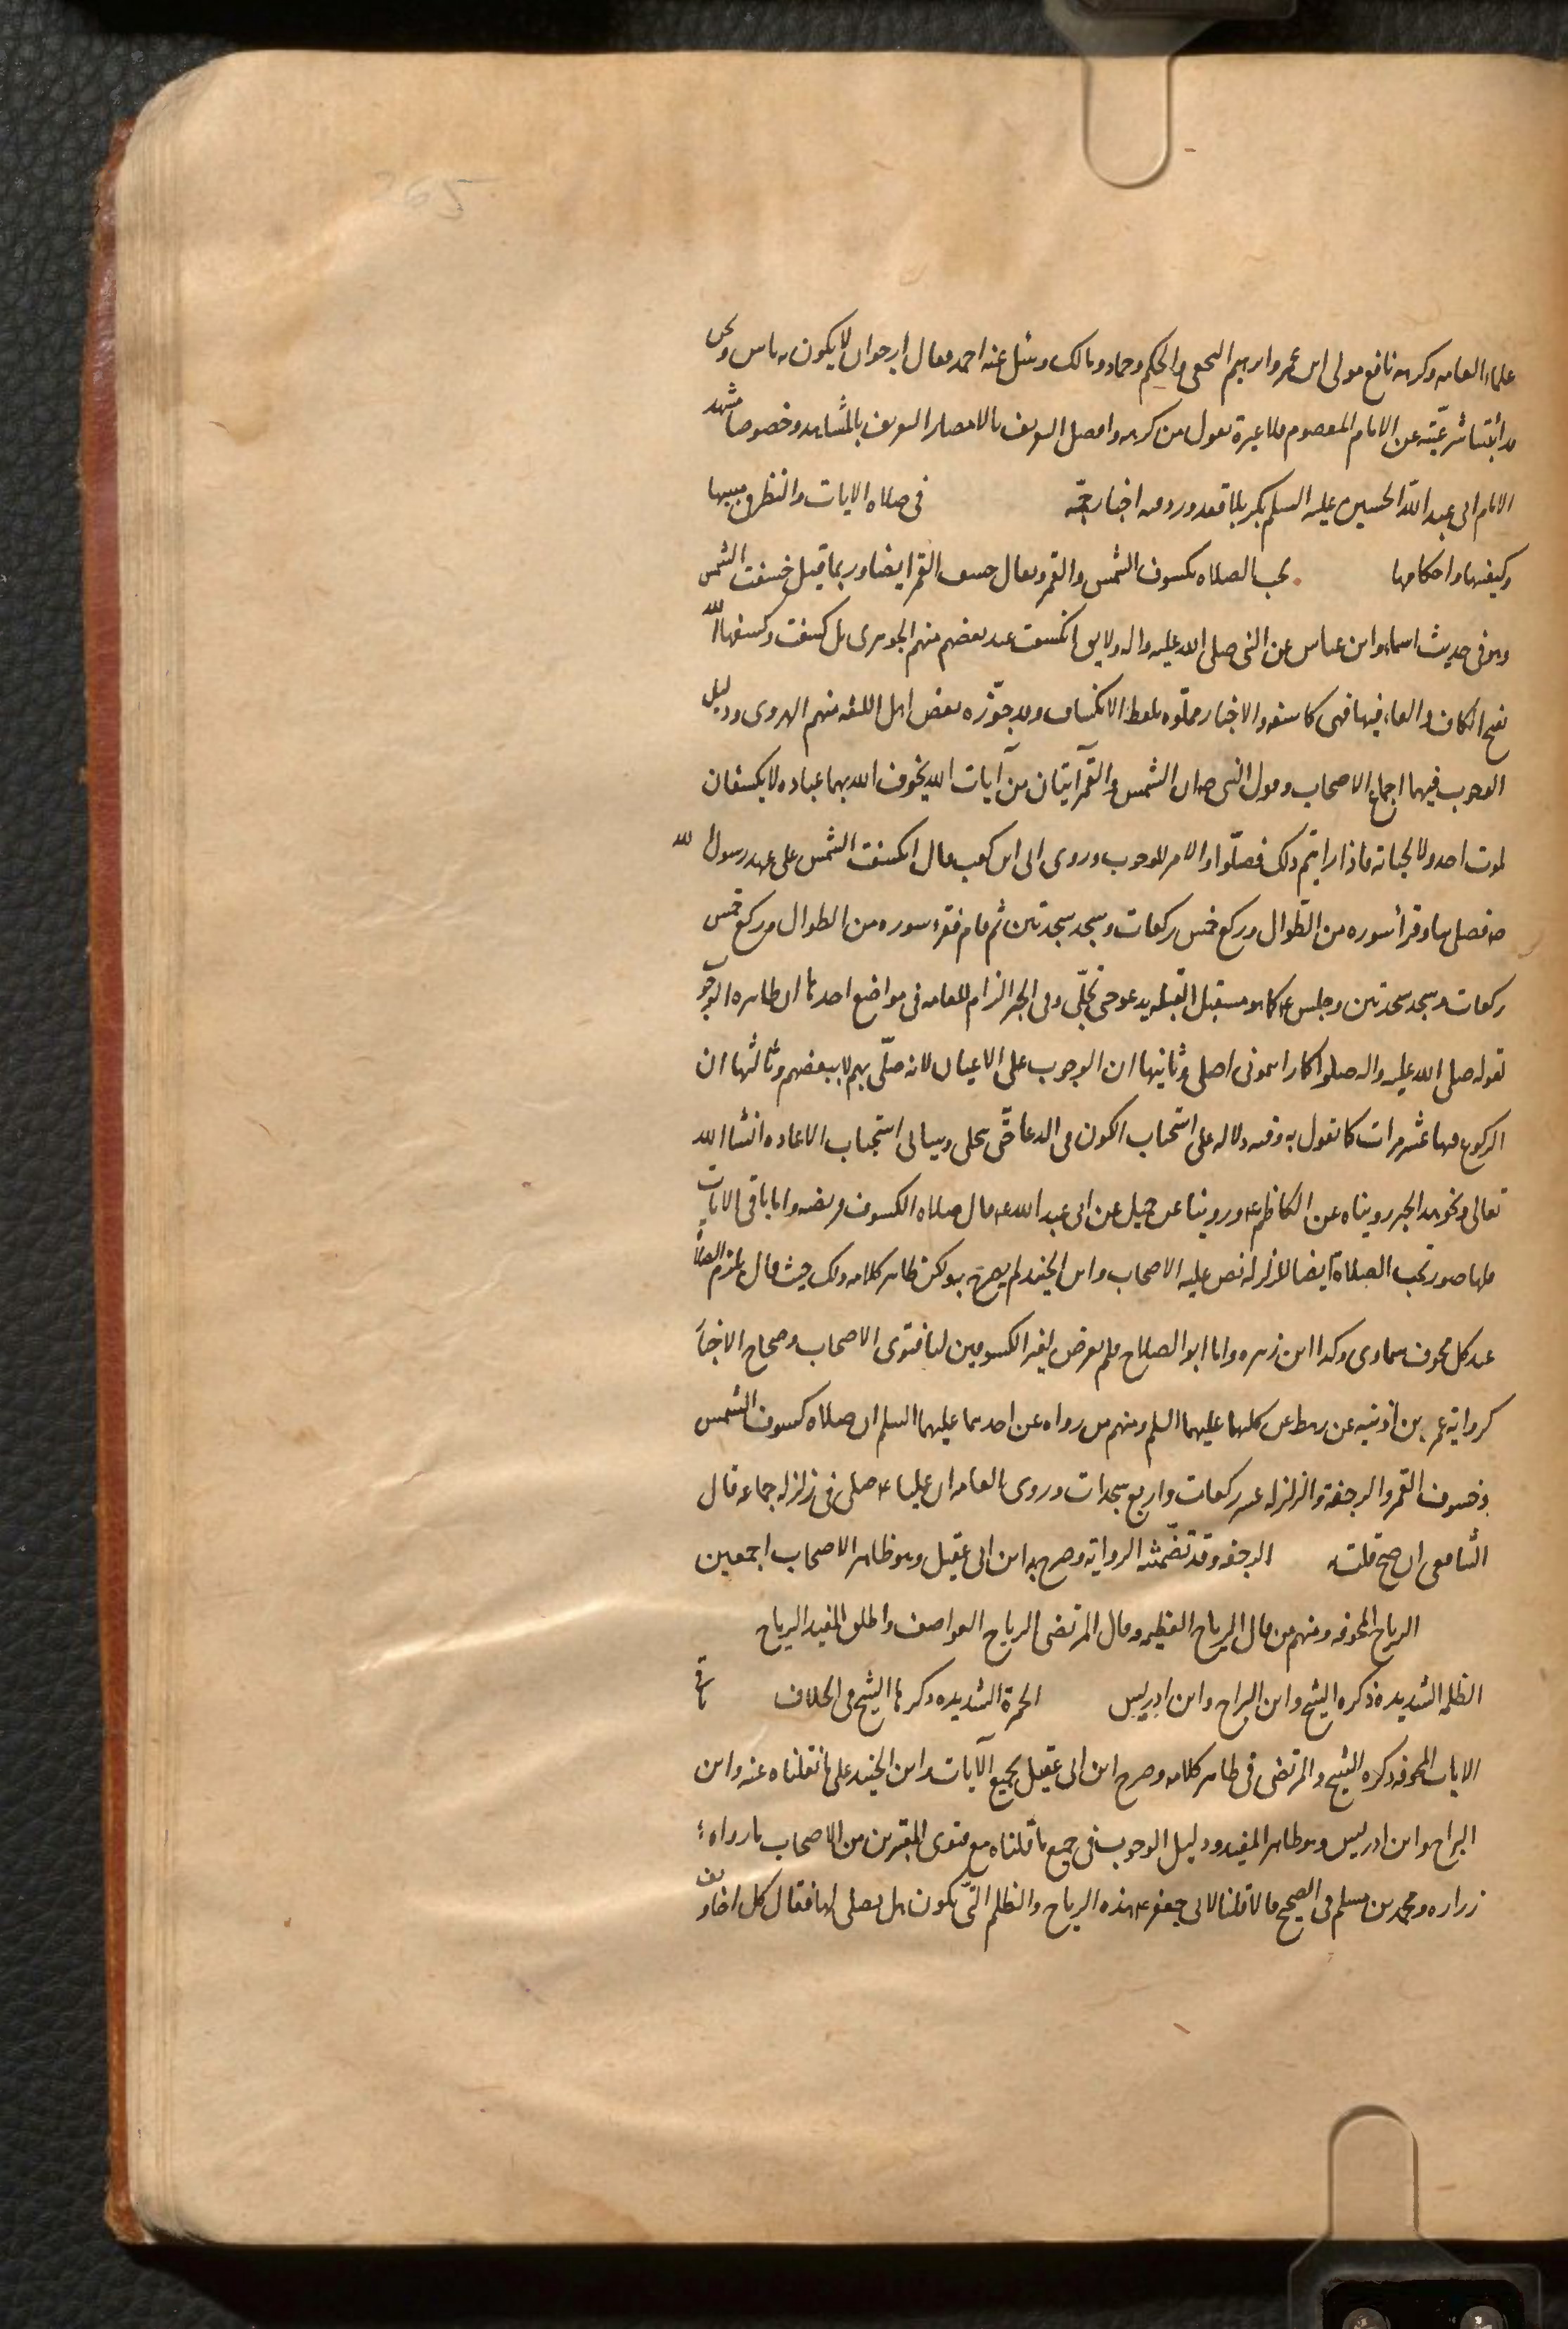 265
علماء العامه وكرهه نافع مولى ابن عمر وابرهيم النخعى والحكم وحماد ومالك وسئل عنه احمد فقال ارجو ان لا يكون به باس ونحن
قد اثبتنا شرعيته عن الامام المعصوم فلا عبرة بقول من كرهه وافضل التعريف بالامصار التعريف بالمشاهد وخصوصا مشهد
الامام ابى عبد الله الحسين عليه السلم بكربلا فقد ورد فيه اخبار جمّه في صلاه الايات والنظر في سببها
وكيفيتها واحكامها يجب الصلاه بكسوف الشمس والقمر ويقال خسف القمر ايضا وربما قيل خسفت الشمس
وهو فى حديث اسماء وابن عباس عن النبى صلى الله عليه واله ولا يق انكسفت عند بعضهم منهم الجوهرى بل كسفت وكسفها الله
بفتح الكاف والفاء فيها فهى كاسفه والاخبار مملوّه بلفظ الانكساف وقد جوّزه بعض اهل اللغه منهم الهروى ودليل
الوجوب فيهما اجماع الاصحاب وقول النبى ص ان الشمس والقمر آيتان من آيات الله يخوف الله بهما عباده لا يكسفان
لموت احد ولا لحياته فاذا رايتم ذلك فصلّوا والامر للوجوب وروى ابى ابن كعب قال انكسفت الشمس على عهد رسول الله
ص فصلى بها وقرأ سوره من الطّوال وركع خمس ركعات وسجد سجدتين ثم قام فقرء سوره من الطوال وركع خمس
ركعات وسجد سجدتين وجلس ع كما هو مستقبل القبله يدعو حتى تجلّى وفى الخبر الزام للعامه فى مواضع احدها ان ظاهره الوجوب
لقوله صلى الله عليه واله صلوا كما رايتمونى اصلى وثانيها ان الوجوب على الاعيان لانه صلّى بهم لا ببعضهم وثالثها ان
الركوع فيها عشر مرات كما نقول به وفيه دلاله على استحباب الكون فى الدعا حتّى ينجلى وسياتى استحباب الاعاده انشا الله
تعالى ونحو هذا الخبر رويناه عن الكاظم ع وروينا عن جميل عن ابى عبد الله ع قال صلاه الكسوف فريضه واما باقى الايات
فلها صور تجب الصلاة ايضا للزلزله نص عليه الاصحاب وابن الجنيد لم يصرح به ولكن ظاهر كلامه ذلك حيث قال تلزم الصلاة
عند كل مخوف سماوى وكذا ابن زهره واما ابو الصلاح فلم يتعرض لغير الكسوفين لنا فتوى الاصحاب وصحاح الاخبار
كرواية عمر بن اذينه عن رهط عن كليهما عليهما السلم ومنهم من رواه عن احدهما عليهما السلم ان صلاه كسوف الشمس
وخسوف القمر والرجفة والزلزله عشر ركعات واربع سجدات وروى العامه ان عليا ع صلى فى زلزله جماعه قال
الشافعى ان صح قلت به الرجفه وقد تضمّنته الروايه وصرح به ابن ابى عقيل وهو ظاهر الاصحاب اجمعين
الرياح المخوفه ومنهم من قال الرياح العظيمه وقال المرتضى الرياح العواصف واطلق المفيد الرياح
الظلمه الشديده ذكره الشيخ وابن البراج وابن ادريس الحمرة الشديده ذكرها الشيخ فى الخلاف باقى
الايات المخوفه ذكره الشيخ والمرتضى فى ظاهر كلامه وصرح ابن ابى عقيل بجميع الآيات وابن الجنيد على ما نقلناه عنه وابن
البراج وابن ادريس وهو ظاهر المفيد ودليل الوجوب فى جميع ما قلناه مع فتوى المعتبرين من الاصحاب ما رواه
زراره ومحمد بن مسلم فى الصحيح قالا قلنا لابى جعفر ع هذه الرياح والظلم التى تكون هل يصلى لها فقال كل اخاويف